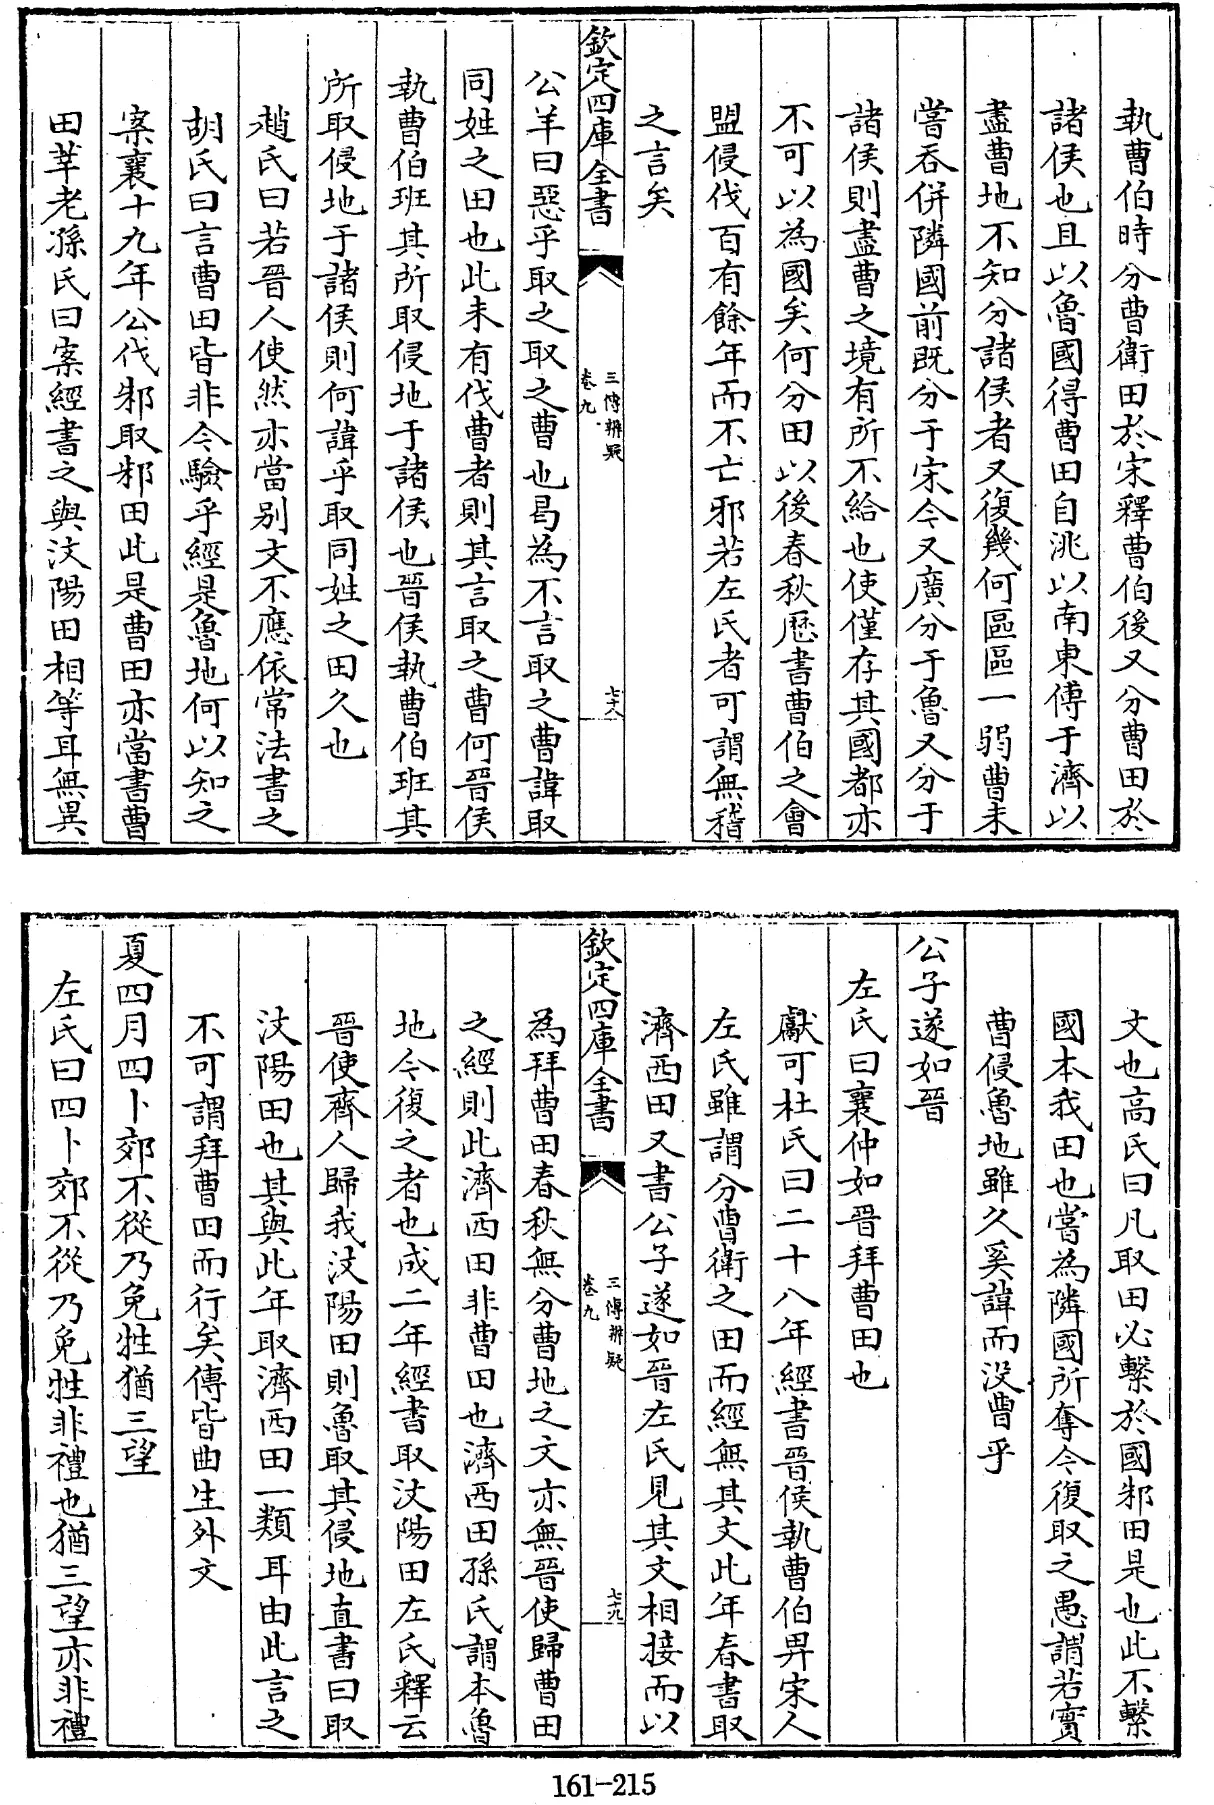 執曹伯時分曹衛田於宋釋曹伯後又分曹田於
諸侯也且以魯國得曹田自洮以南東傅于濟以
盡曹地不知分諸侯者又復幾何區區一弱曹未
嘗吞併隣國前既分于宋今又廣分于魯又分于
諸侯則盡曹之境有所不給也使僅存其國都亦
不可以為國矣何分田以後春秋歴書曹伯之會
盟侵伐百有餘年而不亡邪若左氏者可謂無稽
之言矣
欽定四庫全書
三傳辨疑
卷九
七十八
公羊曰惡乎取之取之曹也曷為不言取之曹諱取
同姓之田也此未有伐曹者則其言取之曹何晉侯
執曹伯班其所取侵地于諸侯也晉侯執曹伯班其
所取侵地于諸侯則何諱乎取同姓之田久也
趙氏曰若晉人使然亦當别文不應依常法書之
胡氏曰言曹田皆非今驗乎經是魯地何以知之
案襄十九年公伐邾取邾田此是曹田亦當書曹
田莘老孫氏曰案經書之與汶陽田相等耳無異
文也高氏曰凡取田必繫於國邾田是也此不繫
國本我田也嘗為隣國所奪今復取之愚謂若實
曹侵魯地雖久奚諱而没曹乎
公子遂如晉
左氏曰襄仲如晉拜曹田也
獻可杜氏曰二十八年經書晉侯執曹伯畀宋人
左氏雖謂分曹衛之田而經無其文此年春書取
濟西田又書公子遂如晉左氏見其文相接而以
欽定四庫全書
三傳辨疑
卷九
七十九
為拜曹田春秋無分曹地之文亦無晉使歸曹田
之經則此濟西田非曹田也濟西田孫氏謂本魯
地今復之者也成二年經書取汶陽田左氏釋云
晉使齊人歸我汶陽田則魯取其侵地直書曰取
汶陽田也其與此年取濟西田一類耳由此言之
不可謂拜曹田而行矣傳皆曲生外文
夏四月四卜郊不從乃免牲猶三望
左氏曰四卜郊不從乃免牲非禮也猶三望亦非禮
161-215